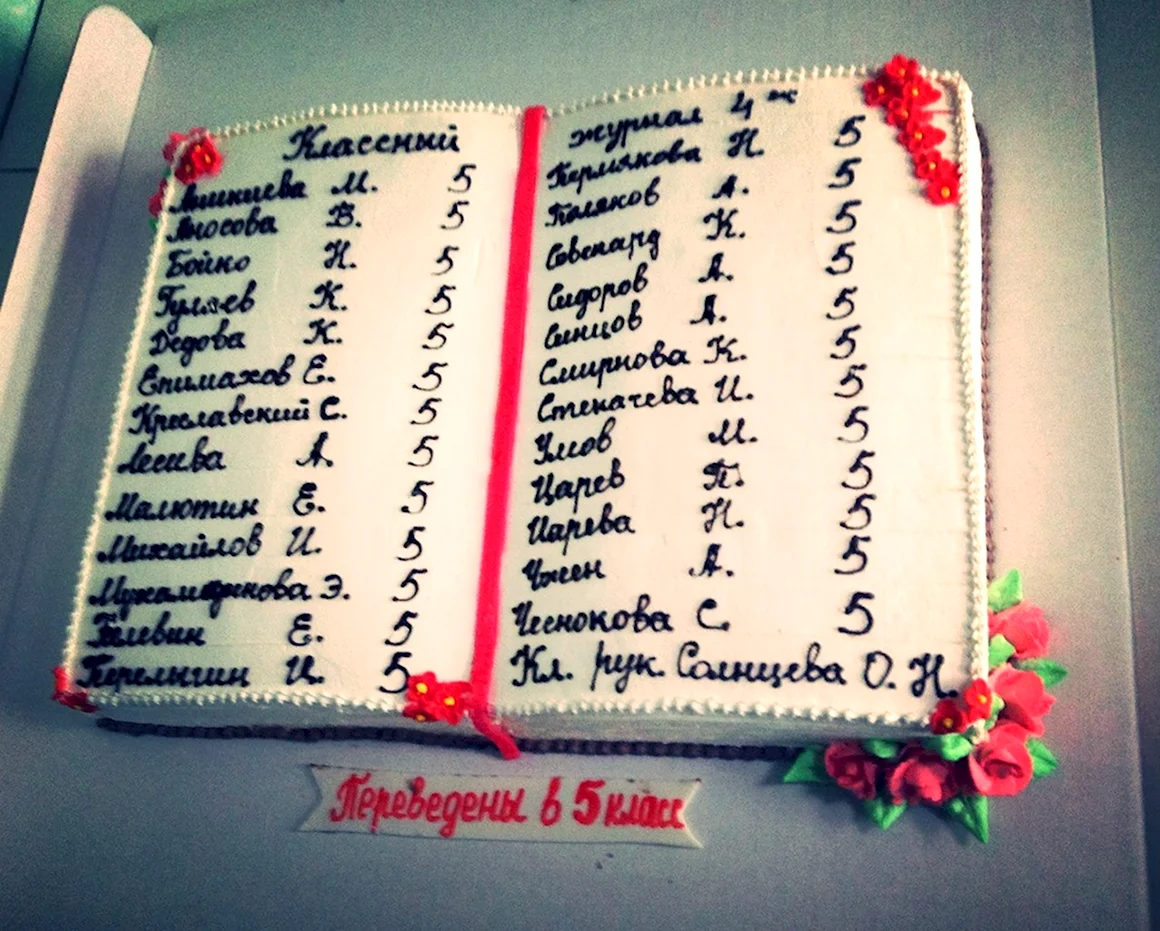 Классный
Аникиева М. 5
Аносова В. 5
Бойко Н. 5
Гуляев К. 5
Дедова К. 5
Епимахов Е. 5
Креславский С. 5
Лесива А. 5
Малютин Е. 5
Михайлов И. 5
Мухамадинова Э. 5
Пелевин Е. 5
Перелыгин И. 5
журнал 4 "ж"
Пермякова Н. 5
Поляков А. 5
Совенард К. 5
Сидоров А. 5
Синцов А. 5
Смирнова К. 5
Стекачева И. 5
Умов М. 5
Царев П. 5
Царева Н. 5
Чжен А. 5
Чеснокова С. 5
Кл. рук. Солнцева О. Н.
Переведены в 5 класс